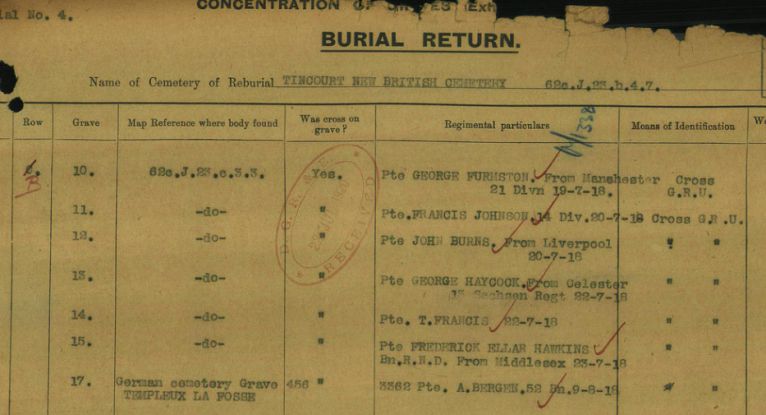 ial No. 4.
CONCENTRATION OF GRAVES (Exh
BURIAL RETURN.
Name of Cemetery of Reburial TINCOURT NEW BRITISH CEMETERY 62c.J.23.b.4.7.
Row Grave Map Reference where body found Was cross on grave? Regimental particulars Means of Identification We
B 10. 62c.J.23.c.3.3. Yes. Pte GEORGE FURMSTON. From Manchester Cross
21 Divn 19-7-18. G.R.U.
11. -do- " Pte.FRANCIS JOHNSON.14 Div.20-7-18 Cross G.R.U.
12. -do- " Pte JOHN BURNS. From Liverpool " "
20-7-18
13. -do- " Pte GEORGE HAYCOCK.From Celester " "
Sachsen Regt 22-7-18
14. -do- " Pte. T.FRANCIS 22-7-18 " "
15. -do- " Pte FREDERICK ELLAR HAWKINS " "
Bn.R.N.D. From Middlesex 23-7-18
17. German cemetery Grave 456 " 3362 Pte. A.BERGEN.52 Bn.9-8-18 " "
TEMPLEUX LA FOSSE
D.G.R. & E.
RECEIVED